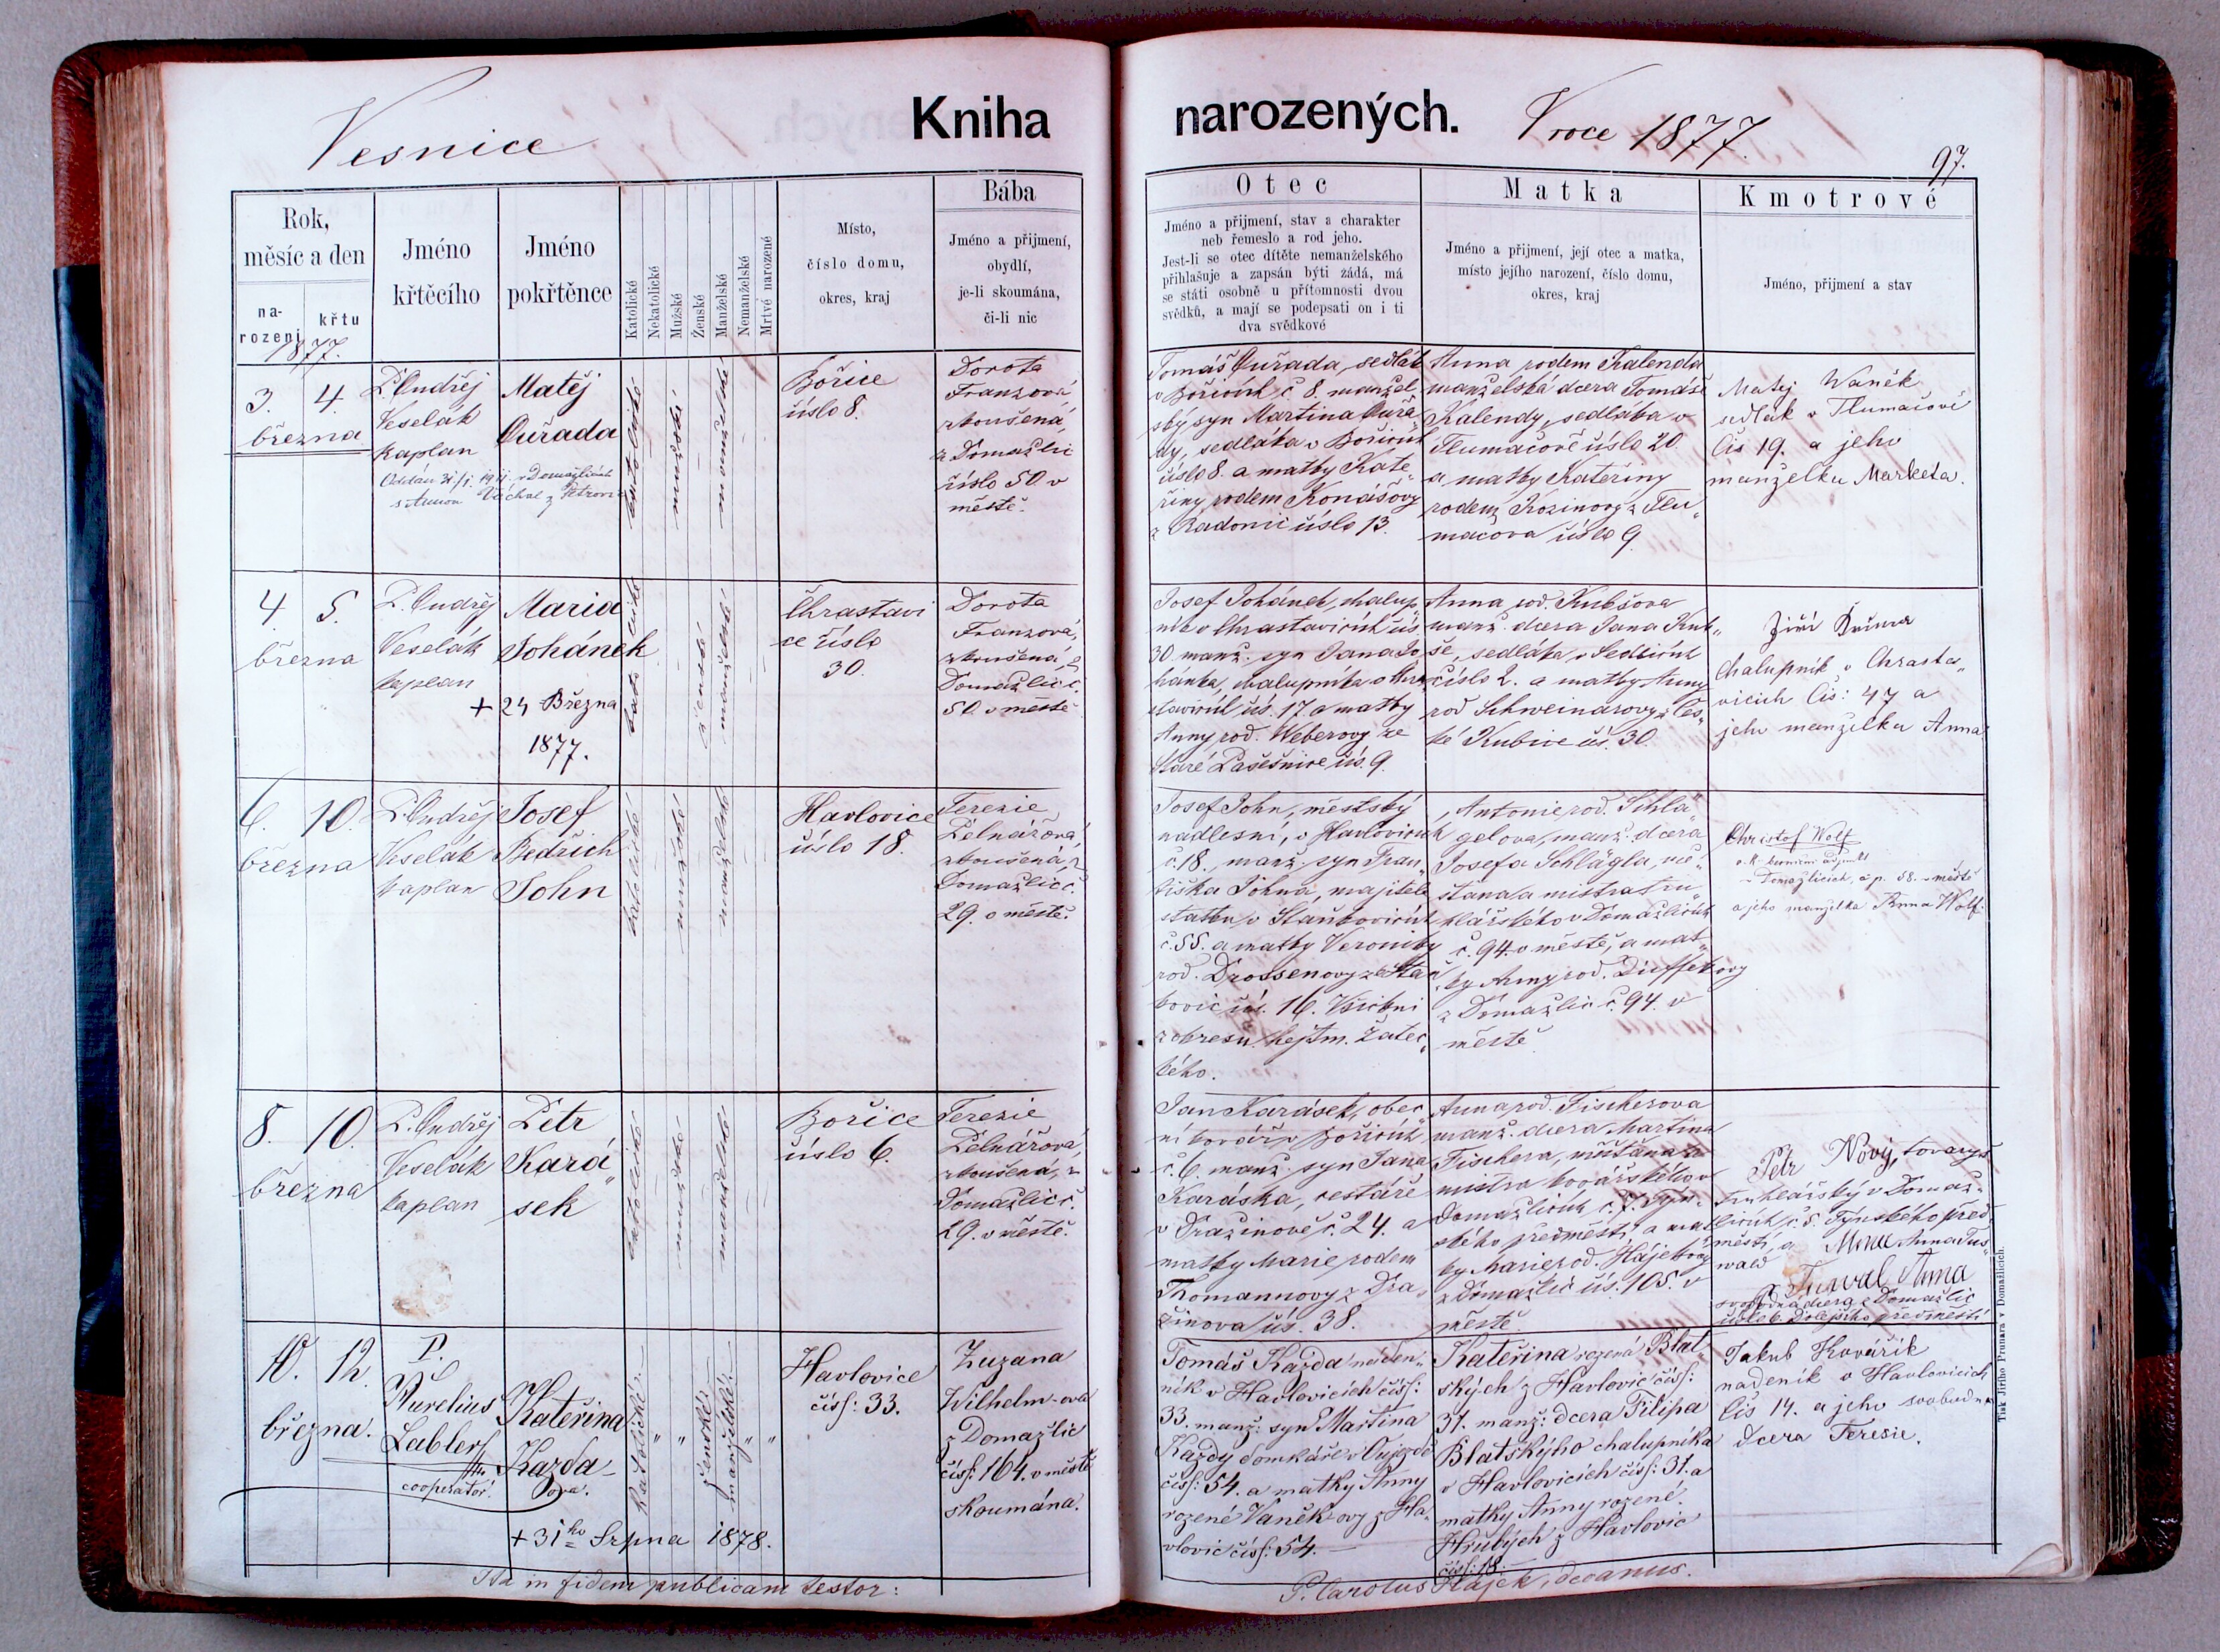 Vesnice
Kniha
narozených.
V roce 1877.
97.
Rok,
měsíc a den
na-
rození
křtu
1877.
Jméno
křtěcího
Jméno
pokřtěnce
Katolické
Nekatolické
Mužské
Ženské
Manželské
Nemanželské
Mrtvé narozené
Místo,
číslo domu,
okres, kraj
Bába
Jméno a přijmení,
obydlí,
je-li skoumána,
či-li nic
Otec
Jméno a přijmení, stav a charakter
neb řemeslo a rod jeho.
Jest-li se otec dítěte nemanželského
přihlašuje a zapsán býti žádá, má
se státi osobně u přítomnosti dvou
svědků, a mají se podepsati on i ti
dva svědkové
Matka
Jméno a přijmení, její otec a matka,
místo jejího narození, číslo domu,
okres, kraj
Kmotrové
Jméno, přijmení a stav
3. 4.
března
P. Ondřej
Veselák
kaplan
Matěj
Cuřada
Oddán 31/1. 1911 v Domažlicích
katolické
mužské
manželské
Bořice
číslo 8.
Dorota
Franzová
zkoušená,
z Domažlic
číslo 50 v
městě.
Tomáš Cuřada, sedlák
v Bořicích č. 8. manžel
ský syn Martina Cuřa
dy, sedláka v Bořicích
číslo 8. a matky Kate
řiny rodem Konášovy
z Radonic číslo 13.
Anna rodem Kalenda
manželská dcera Tomáše
Kalendy, sedláka v
Tlumačově číslo 20
a matky Kateřiny
rodem Kozinovy z Tlu„
mačova číslo 9.
Matěj Waněk
sedlák v Tlumačově
čís 19. a jeho
manželka Marketa.
4. 5.
března
P. Ondřej
Veselák
kaplan
Maria
Johánek
+ 24 Března
1877.
katolické
ženské
manželské
Chrastavi
ce číslo
30.
Dorota
Franzová,
zkoušená, z
Domažlic č.
50 v městě
Josef Johánek, chalup„
ník v Chrastavicích čís
30 manž. syn Jana Jo
hánka, chalupníka v Chra
stavicích čís. 17. a matky
Anny rod. Weberovy ze
Staré Pasečnice čís. 9.
Anna rod. Kubšova
manž. dcera Jana Kub„
še, sedláka v Sedlicích
číslo 2. a matky Anny
rod Schweinarovy z Čes„
ké Kubice čís. 30.
Jiří
Chalupník v Chrasta„
vicích čís: 47 a
jeho manželka Anna
6. 10.
března
P. Ondřej
Veselák
kaplan
Josef
Bedřich
John
katolické
mužské
manželské
Havlovice
číslo 18.
Terezie
Zelnářová
zkoušená, z
Domažlic č.
29. v městě.
Josef John, městský
nadlesní, v Havlovicích
č. 18., manž. syn Fran„
tiška Johna, majitele
statku v Staňkovicích
č. 55. a matky Veroniky
rod. Drossenovy ze Staň
kovic čís. 16.
z okresu hejtm. Žatec„
kého.
Antonie rod. Schlä„
gelova, manž. dcera
Josefa Schlägla, mě„
šťana a mistra tru
hlářského v Domažlicích
č. 94 v městě, a mat„
ky Anny rod. Dieffekovy
z Domažlic č. 94. v
městě
Christof Wolf
v Domažlicích, č. p. 58. v městě
a jeho manželka Anna Wolf.
8. 10.
března
P. Ondřej
Veselák
kaplan
Petr
Kará„
sek
katolické
mužské
manželské
Bořice
číslo 6.
Terezie
Zelnářová,
zkoušená, z
Domažlic č.
29. v městě.
Jan Karásek, obec„
ní kovář v Bořicích,
č. 6. manž. syn Jana
Karáska, cestáře
v Dražinově č. 24. a
matky Marie rodem
Thomannovy z Dra„
žinova čís. 38.
Anna rod. Fischerova
manž. dcera Martina
Fischera, měšťana a
mistra kovářského v
Domažlicích č. 7. Týn„
ského předměstí, a mat
ky Marie rod. Hájekovy
z Domažlic čís. 105. v
městě
Petr Nový, tovaryš
truhlářský v Domaž„
licích, č. 5. Týnského před„
městí, a Anna Tus„
wald
Tuswal Anna
svobodná dcera z Domažlic
číslo 6. Dolejšího předměstí
10. 12.
března.
P.
Aurelius
Labler
cooperator.
Kateřina
Kazda-
ova.
+ 31ho Srpna 1878.
katolické
ženské
manželské
Havlovice
čísl: 33.
Zuzana
Wilhelm-ova
z Domažlic
čísl: 164. v městě
skoumána.
Tomáš Kazda náden„
ník v Havlovicích čísl:
33. manž: syn Martina
Kazdy domkáře v Oujezdě
čísl: 54. a matky Anny
rozené Vaněk-ovy z Ha„
vlovic čísl: 54.
Kateřina rozená Blat
ských z Havlovic čísl:
31. manž: dcera Filipa
Blatskýho chalupníka
v Havlovicích čísl: 31. a
matky Anny rozené
Hrubých z Havlovic
čísl: 18.
Jakub Kovářík
nadeník v Havlovicích
čís 14. a jeho svobodná
dcera Teresie.
Ita in fidem publicam testor:
P. Carolus Hájek, decanus.
Tisk Jiřího Prunara v Domažlicích.